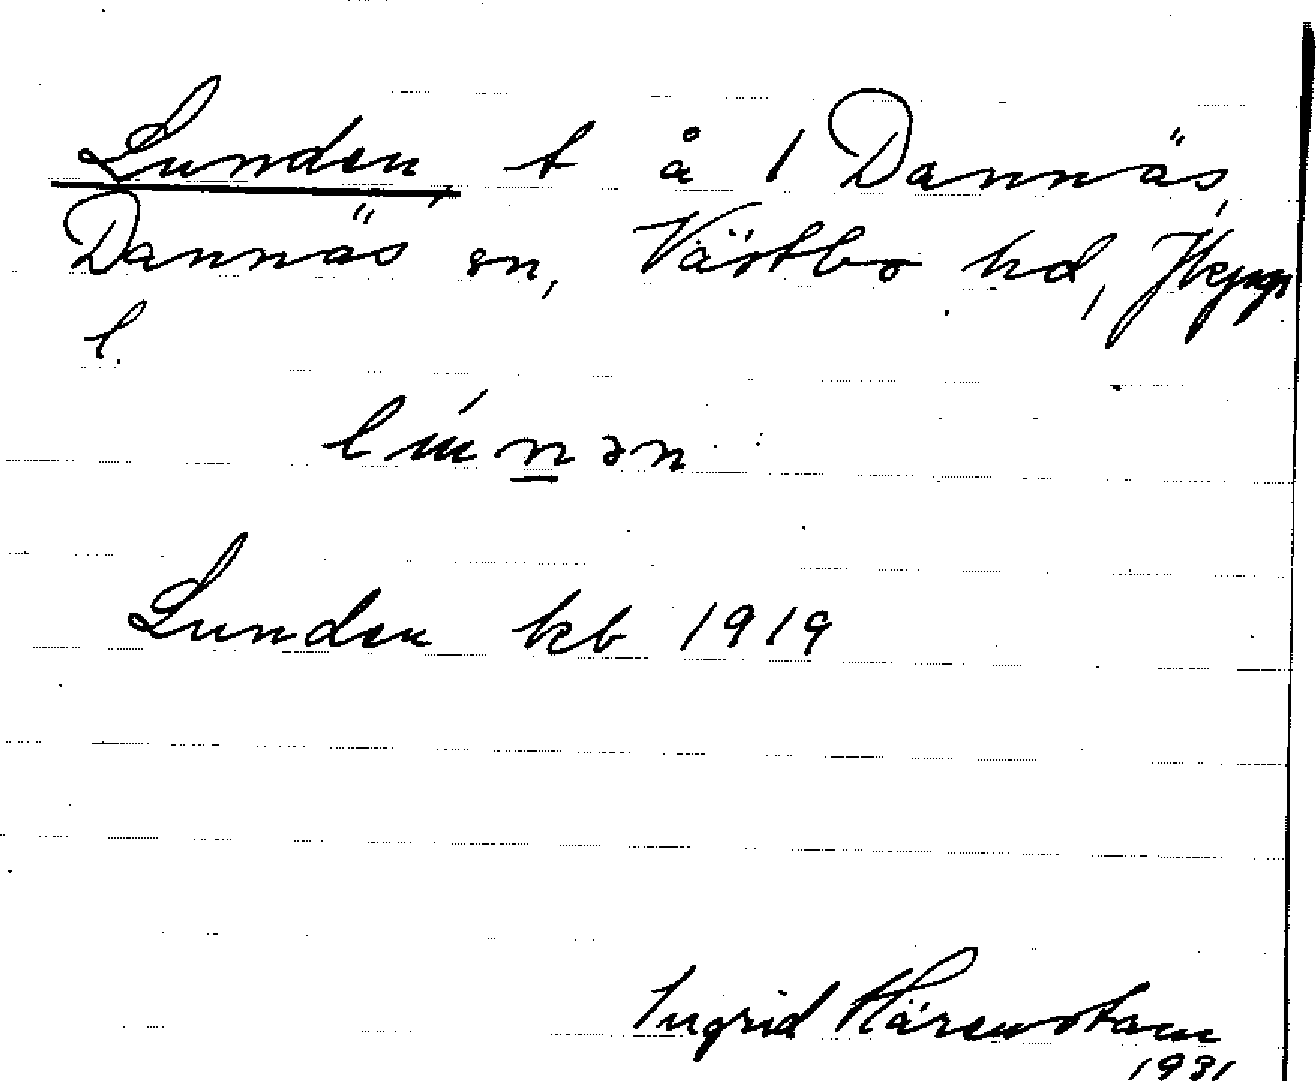 Lunden, t å 1 Dannäs,
Dannäs sn, Västbo hd, Jkpgs
l.
Lunden kb 1919
Ingrid Härenstam
1931